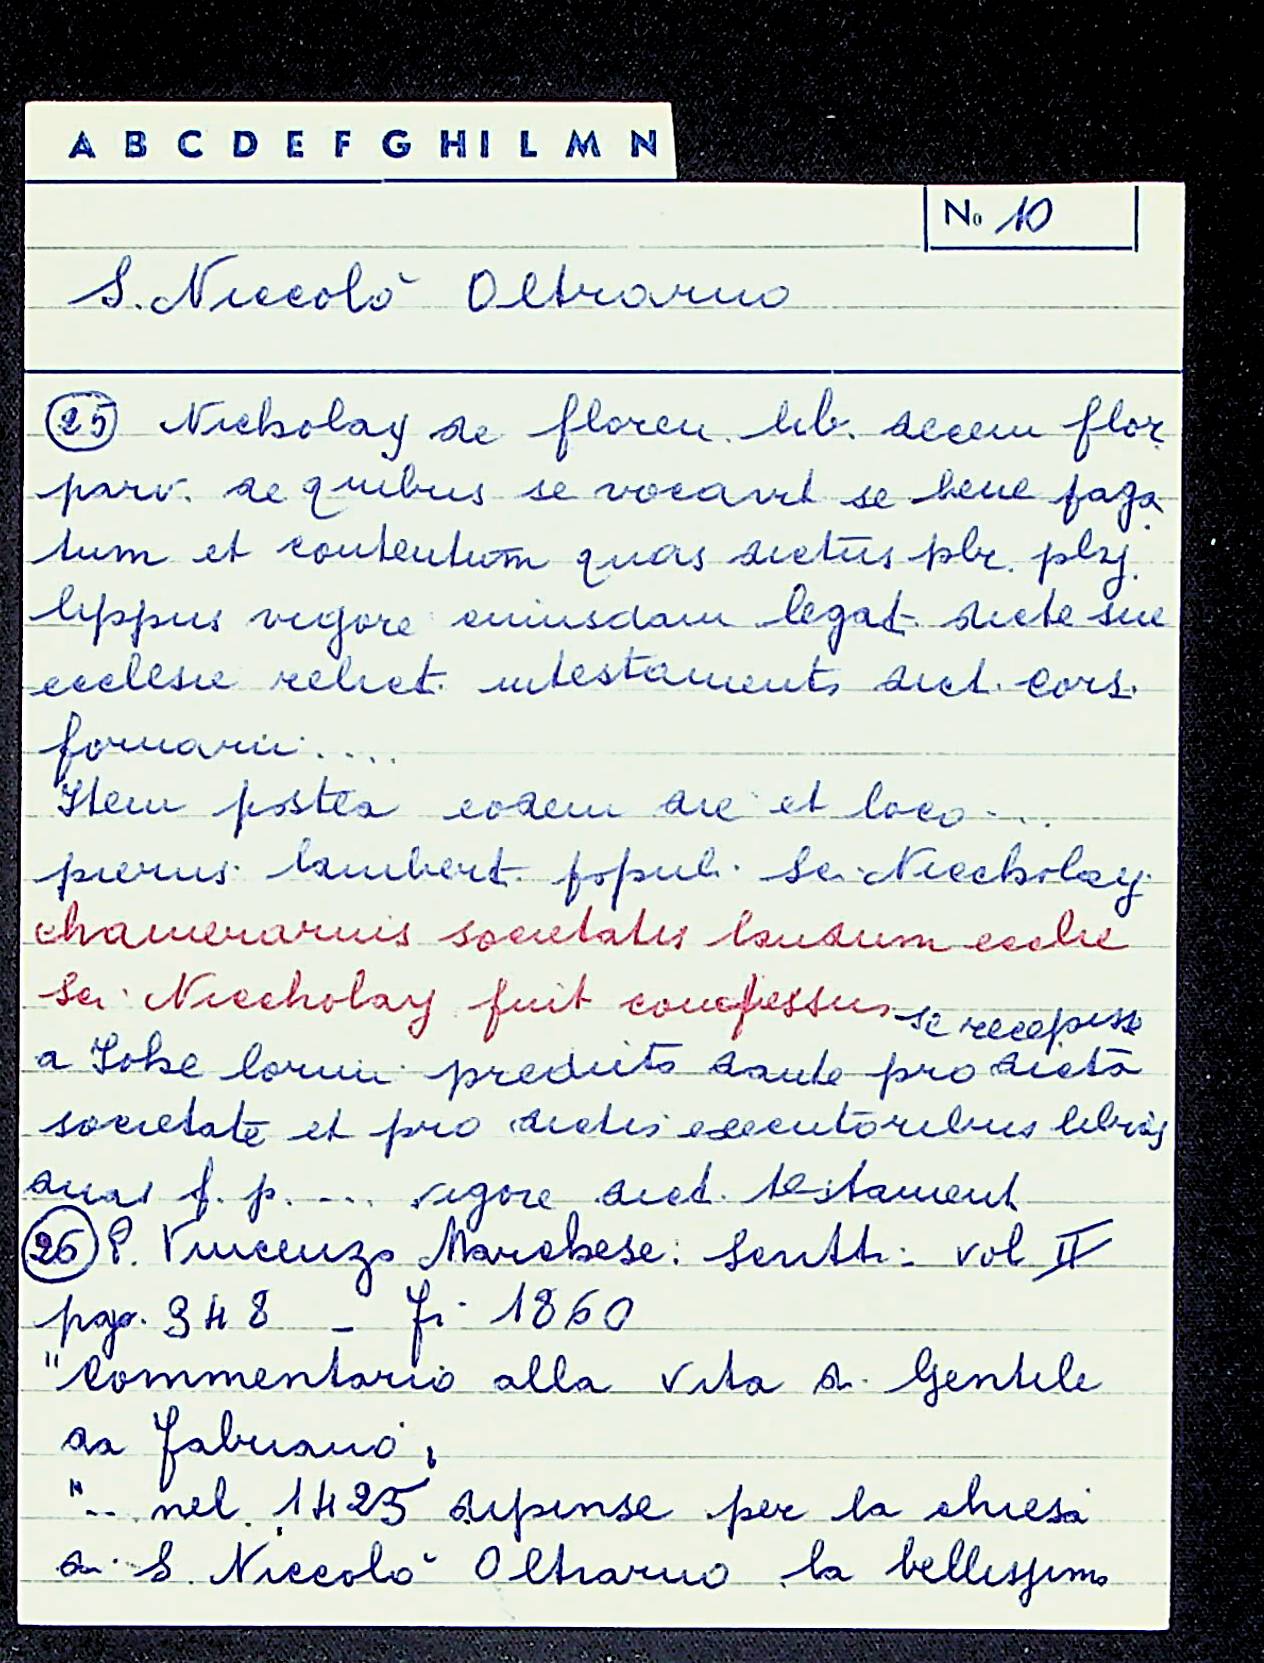 A B C D E F G H I L M N
No 10
S. Niccolò Oltrarno
25 Nicholay de floren. lib. decem flor.
parv. de quibus se vocavit se bene paga
tum et contentum quas dictus pbr. phy.
lippus vigore cuiusdam legat. dicte sue
ecclesie relict. in testamento dict. Cors.
fornarii....
Item postea eodem die et loco ...
pierus lambert. popul. Sci Niccholay
chamerarius societatis laudum ecclie
Sci Niccholay fuit confessus se recepisse
a Iohe lorini predicto dante pro dictā
societate et pro dictis executoribus libras
duas f. p. ... vigore dict. testament
26 P. Vincenzo Marchese: Scritti: vol II
pag. 348 - Fi 1860
"Commentario alla vita di Gentile
da Fabriano,
"... nel 1425 dipinse per la chiesa
di S. Niccolò Oltrarno la bellissima